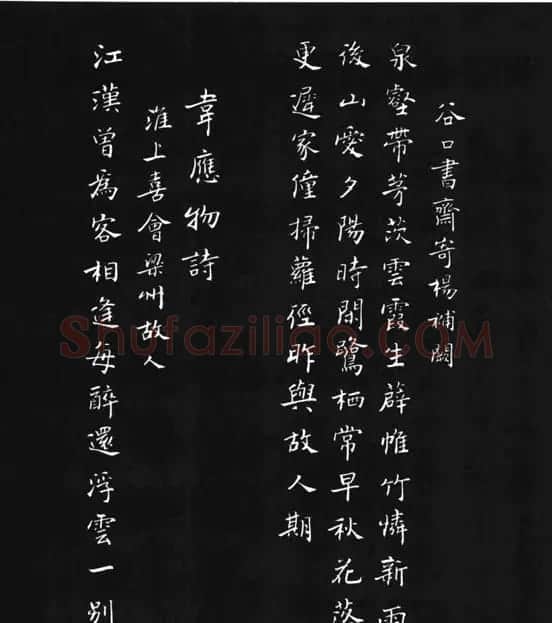 谷口書齋寄楊補闕
泉壑帶茅茨雲霞生薜帷竹憐新雨
後山愛夕陽時閒鷺栖常早秋花落
更遲家僮掃蘿徑昨與故人期
韋應物詩
淮上喜會梁州故人
江漢曾為客相逢每醉還浮雲一別
Shufaziliao.com